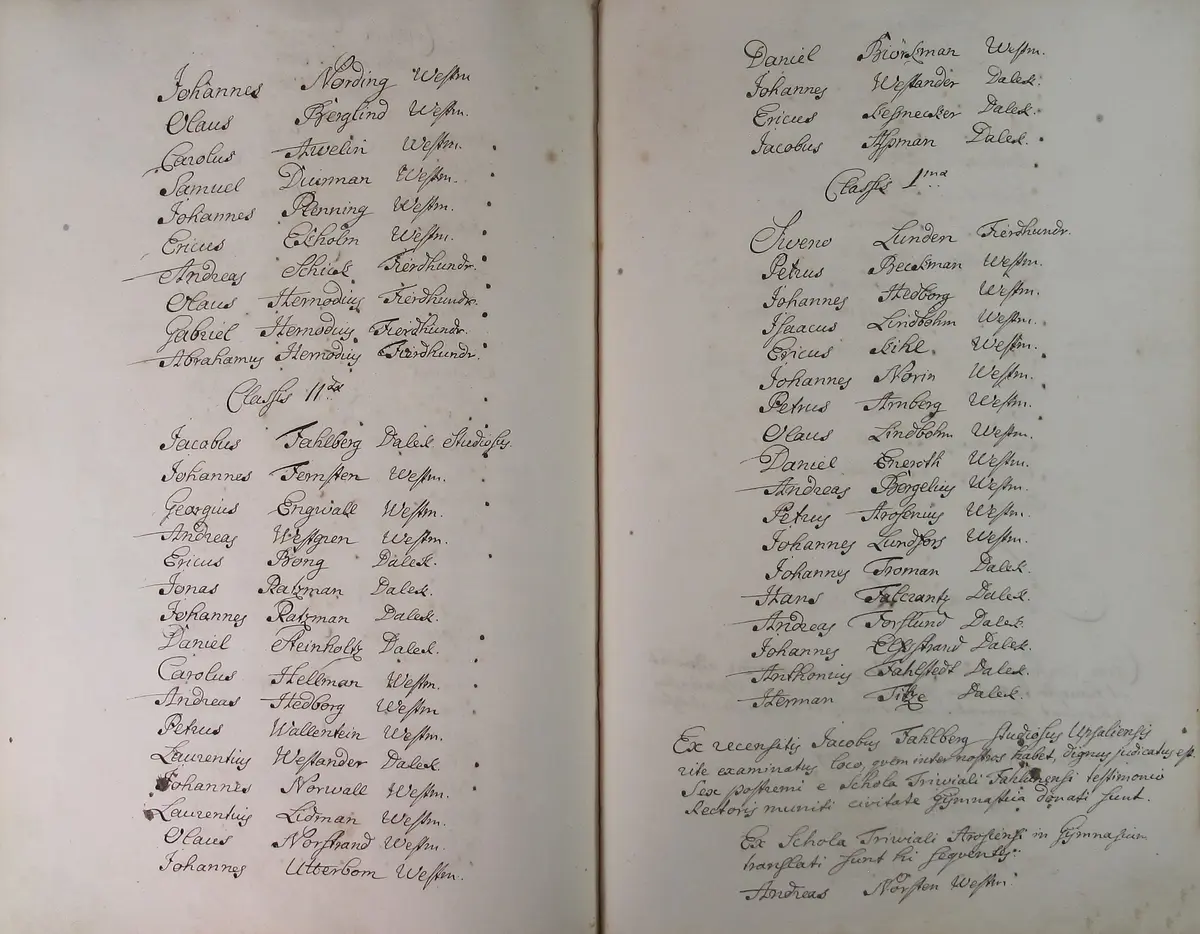 Johannes Nording Westm
Olaus Berglind Westm.
Carolus Awelin Westm.
Samuel Diurman Westm.
Johannes Penning Westm.
Ericus Ekholm Westm.
Andreas Schick Fierdhundr.
Olaus Hernodius Fierdhundr.
Gabriel Hernodius Fierdhundr.
Abrahamus Hernodius Fierdhundr.
Classis II:da
Jacobus Fahlberg Dalek Studiosus
Johannes Fernsten Westm.
Georgius Engwall Westm.
Andreas Westgren Westm.
Ericus Bong Dalek.
Jonas Ratzman Dalek.
Johannes Ratzman Dalek.
Daniel Steinholtz Dalek.
Carolus Hellman Westm.
Andreas Hedborg Westm
Petrus Wallentein Westm.
Laurentius Westander Dalek.
Johannes Norwall Westm.
Laurentius Lidman Westm.
Olaus Norstrand Westm.
Johannes Utterbom Westm.
Daniel Biörkman Westm.
Johannes Westander Dalek.
Ericus Dalek.
Jacobus Aspman Dalek.
Classis 1ma
Sweno Lunden Fierdhundr.
Petrus Beckman Westm.
Johannes Hedborg Westm.
Isaacus Lindbohm Westm.
Ericus Kihl Westm.
Johannes Norin Westm.
Petrus Arnberg Westm.
Olaus Lindbohm Westm.
Daniel Eneroth Westm.
Andreas Bergelius Westm.
Petrus Arosenius Westm.
Johannes Lundfors Westm.
Johannes Troman Dalek.
Hans Falcrantz Dalek.
Andreas Forslund Dalek
Johannes Elfstrand Dalek.
Anthonius Fahlstedt Dalek.
Herman Dalek.
Ex recensitis Jacobus Fahlberg Studiosus Upsaliensis
rite examinatus loco, quem inter nostros habet, dignus judicatus est.
Sex postremi e Schola Triwiali Fahlunensi testimonio
Rectoris muniti civitate Gymnastica donati sunt.
Ex Schola Triwiali Arosiensi in Gymnasium
translati sunt hi sequentes:
Andreas Norsten Westm.